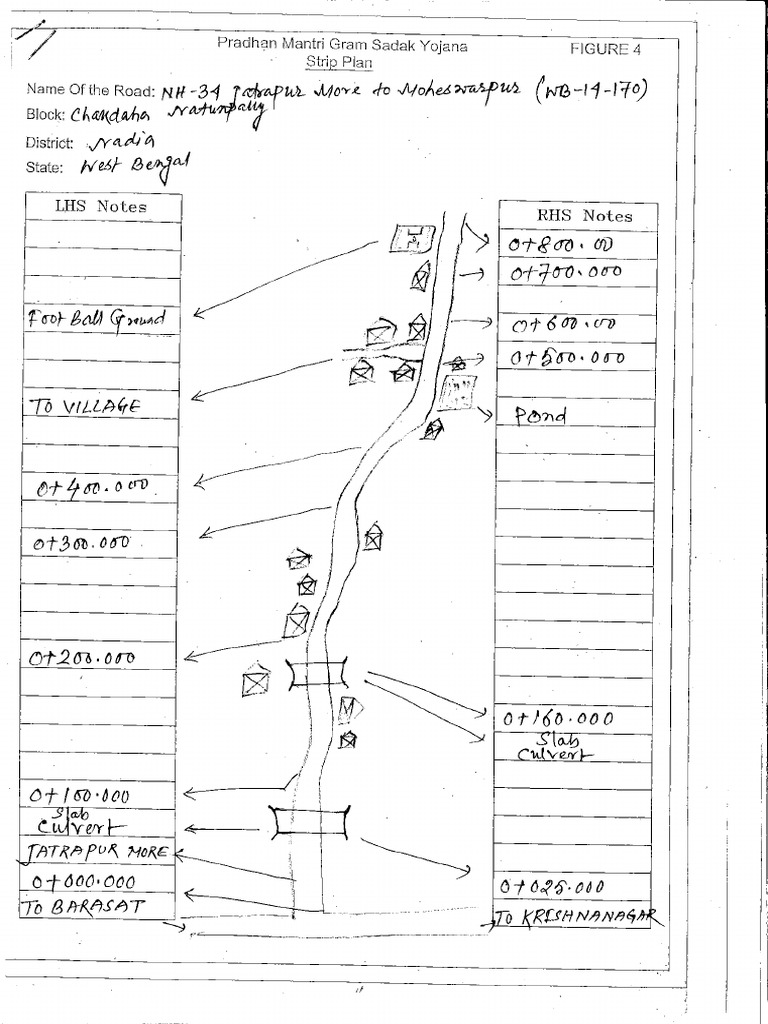 Pradhan Mantri Gram Sadak Yojana
FIGURE 4
Strip Plan
Name Of the Road: NH-34 Jatrapur More to Moheswarpur (WB-14-170)
Natunpally
Block: Chakdaha
District: Nadia
State: West Bengal
LHS Notes
Foot Ball Ground
TO VILLAGE
0+400.000
0+300.000
0+200.000
0+100.000
Slab
Culvert
JATRAPUR MORE
0+000.000
TO BARASAT
RHS Notes
0+800.00
0+700.000
0+600.00
0+500.000
Pond
0+160.000
Slab
Culvert
0+025.000
TO KRISHNANAGAR